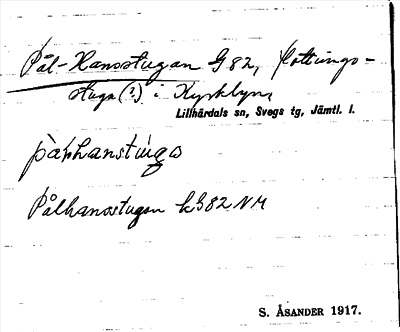 Pål-Hansstugan G 82, 
stuga (?) i Kyrkbyn,
Lillhärdals sn, Svegs tg, Jämtl. l.
Pålhansstugan kG82NM
S. ÅSANDER 1917.